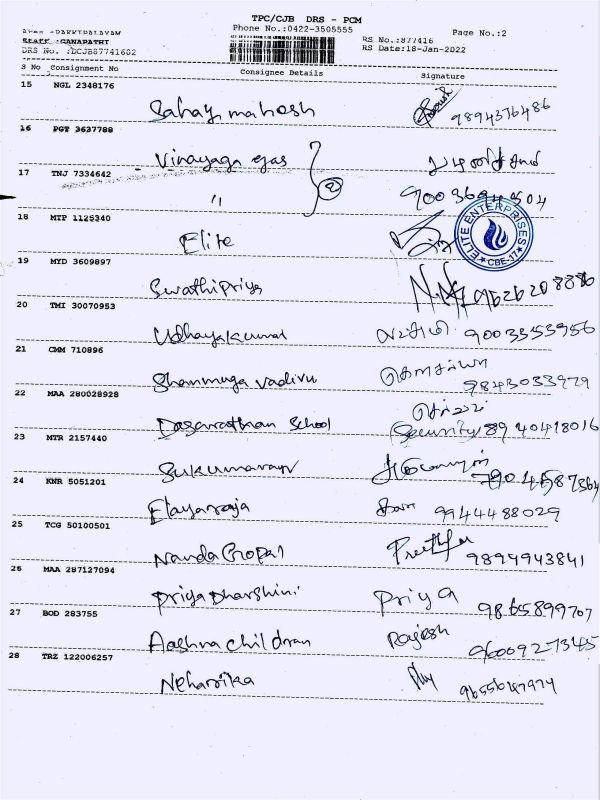 TPC/CJB DRS - PCM
Phone No.:0422-3505555
Page No.:2
Staff :GANAPATHI
RS No.:877416
DRS No. :DCJB87741602
RS Date:18-Jan-2022
S No Consignment No Consignee Details Signature
15 NGL 2348176
Sahay mahesh 9894376486
16 PGT 3637788
Vinayaga gas
17 TNJ 7334642
" 2
ELITE ENTERPRISES
CBE-17
18 MTP 1125340
Elite
19 MYD 3609897
Swathipriya 9626208886
20 TMI 30070953
Udhayakumar லட்சுமி 9003353956
21 CMM 710896
Shanmuga vadivu கௌசல்யா 9843033979
22 MAA 280028928
செல்வம்
Dasarathan School Security 8940418016
23 MTR 2157440
Sukumaran
24 KNR 5051201
Elayaraja 9944488029
25 TCG 50100501
Nanda Gopal 9894943841
26 MAA 287127094
PriyaDharshini Priya 9865899707
27 BOD 283755
Aashra children Rajesh 9600927345
28 TRZ 122006257
Neharika